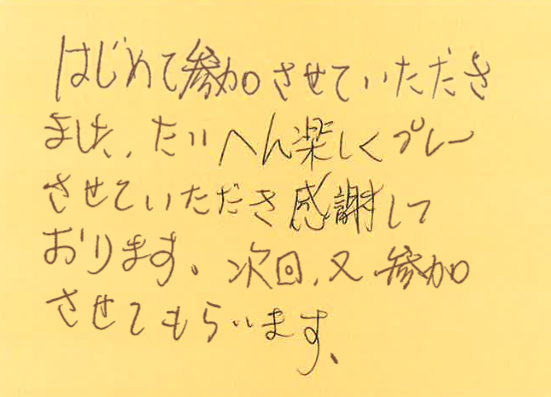 はじめて参加させていただき
ました、たいへん楽しくプレー
させていただき感謝して
おります。次回、又参加
させてもらいます、